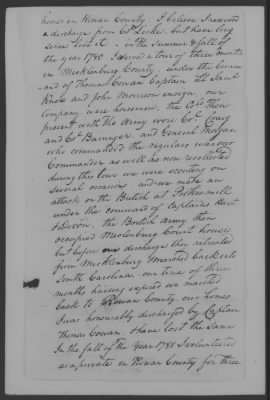 homes in Rowan County. I believe I received
a discharge from Col Locke, but have long
since lost it - in the summer & fall of
the year 1780 I served a tour of three months
in Mecklenburg County. under the Comm
-and of Thomas Cowan Captain Lt Saml
Knox and John Morrison ensign. our
Company were horsemen. the Cols then
present with the army were Col Craig
and Col Barringer. and General Morgan
who commanded the regulars was our
Commander as well as now recollected
during this tour we were scouting on
several occasions and we made an
attack on the British at Polks mill
under the command of Captains Hart
& Dixon. the British Army then
occupied Mecklenburg Court house
but before our discharge they retreated
from Mecklenburg & marched back into
South Carolina. our time of three
months having expired we marched
back to Rowan County. our homes
I was honourably discharged by Captain
Thomas Cowan & have lost the same
In the fall of the year 1781 I volunteered
as a private in Rowan County for three